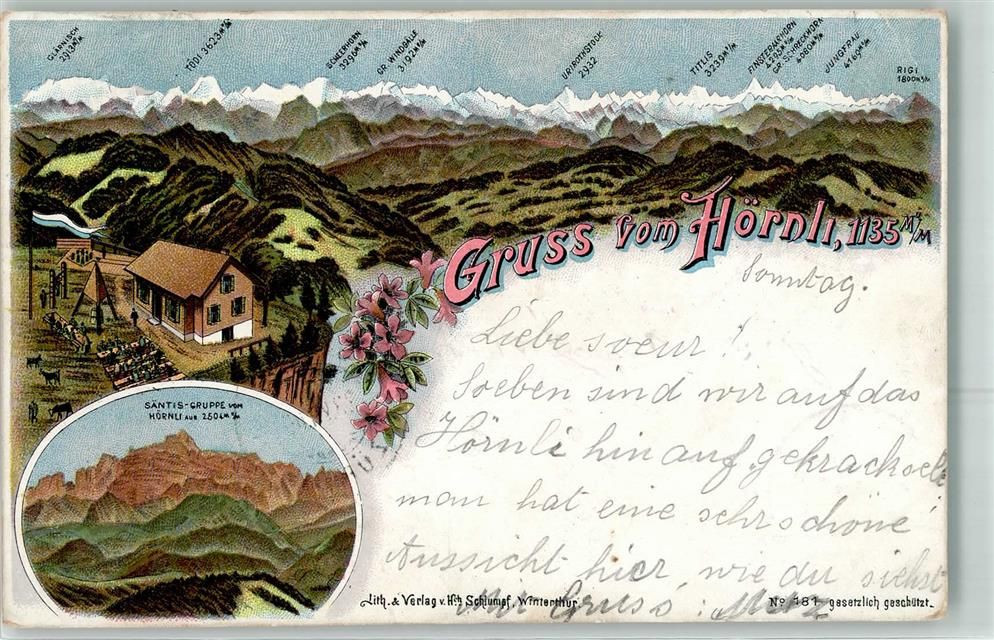 GLÄRNISCH
2913 M/M
TÖDI 3623 M/M
SCHEERHORN
3296 M/M
GR. WINDGÄLE
3192 M/M
URIROTHSTOCK
2932
TITLIS
3239 M/M
FINSTERAARHORN
4275 M/M
GR. SCHRECKHORN
4080 M/M
JUNGFRAU
4167 M/M
RIGI
1800 M/M
Gruss vom Hörnli, 1135 M/M
Sonntag.
Liebe soeur!
Soeben sind wir auf das
Hörnli hinauf gekrackselt
man hat eine sehr schöne
Aussicht hier, wie du siehst
Gruss
SÄNTIS-GRUPPE VOM
HÖRNLI AUS 2504 M/M
Lith. & Verlag v. Hch Schlumpf, Winterthur.
No 181 gesetzlich geschützt.